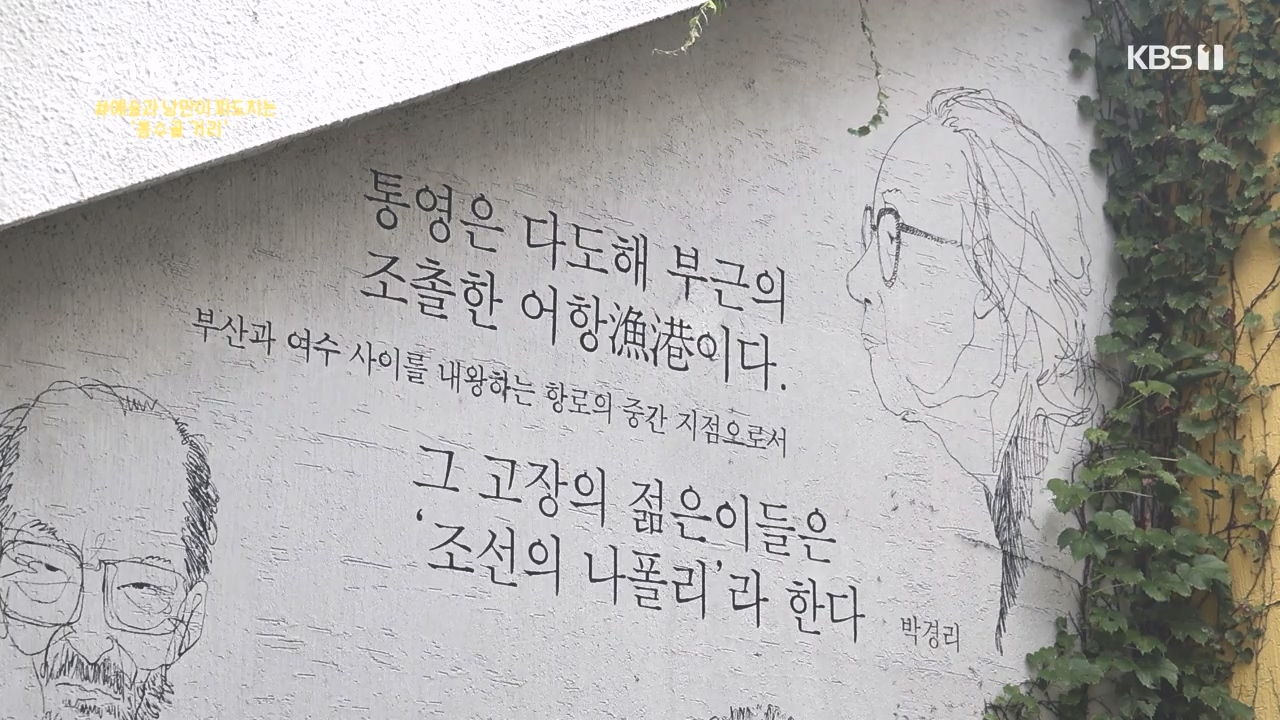 KBS 1
통영은 다도해 부근의
조촐한 어항漁港이다.
부산과 여수 사이를 내왕하는 항로의 중간 지점으로서
그 고장의 젊은이들은
‘조선의 나폴리’라 한다
박경리